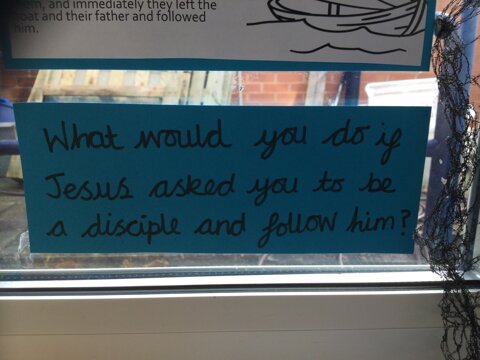 them, and immediately they left the
boat and their father and followed
him.
What would you do if
Jesus asked you to be
a disciple and follow him?